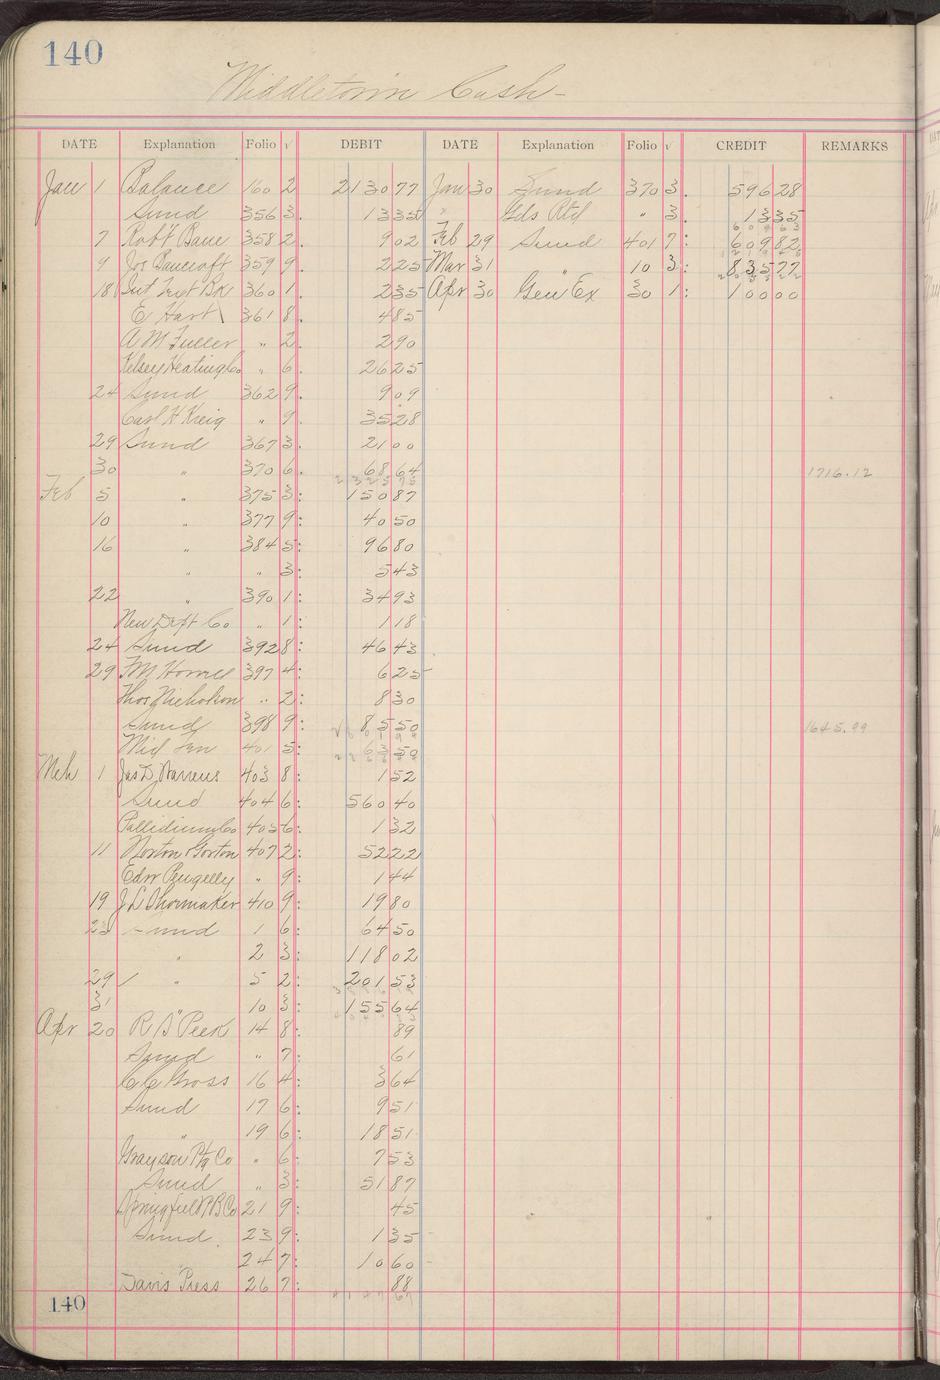 140
Middletown Cash-
DATE Explanation Folio √ DEBIT DATE Explanation Folio √ CREDIT REMARKS
Jan 1 Balance 160 2 2130 77 Jan 30 Sund 370 3. 596 28
Sund 356 3. 13 35 " Gds Rtd " 3. 13 35
7 Robt Bane 358 2. 9 02 Feb 29 Sund 401 7: 609 82
9 Jos Bancroft 359 9. 2 25 Mar 31 " 10 3: 835 77
18 360 1. 2 35 Apr 30 Gen Ex 30 1: 100 00
E Hart 361 8. 4 85
A M Fuller " 2. 2 90
Kelsey Heating Co " 6. 26 25
24 Sund 362 9. 9 09
Carl H Kreig " 9. 35 28
29 Sund 367 3. 21 00
30 " 370 6. 68 64 1716.12
Feb 5 " 375 3: 150 87
10 " 377 9: 40 50
16 " 384 5: 96 80
" " 3: 5 43
22 " 390 1: 34 93
New Dept Co " 1: 1 18
24 Sund 392 8: 46 43
29 397 4: 6 25
Thos Nicholson " 2: 8 30
Sund 398 9: 85 50 1645.99
Mid Gen 401 5: 63 50
Mch 1 Jas D 403 8: 1 52
Sund 404 6: 560 40
Co 405 6: 1 32
11 Norton & Gorton 407 2: 52 22
Edw Pengelly " 9: 1 44
19 J L Shoemaker 410 9: 19 80
23 Sund 1 6: 64 50
" 2 3: 118 02
29 " 5 2: 201 53
31 " 10 3: 155 64
Apr 20 R S Peek 14 8: 89
Sund " 7: 61
C C Gross 16 4: 3 64
Sund 17 6: 9 51
" 19 6: 18 51
Grayson Ptg Co " 6: 7 53
Sund " 3: 51 87
Springfield Co 21 9: 45
Sund 23 9: 1 35
" 24 7: 10 60
Davis Press 26 7: 88
140